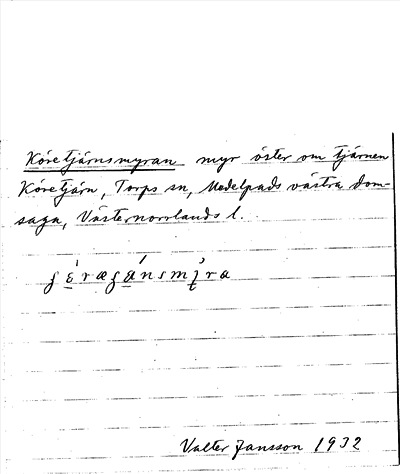 Köretjärnsmyran myr öster om tjärnen
Köretjärn, Torps sn, Medelpads västra dom-
saga, Västernorrlands l.
Valter Jansson 1932